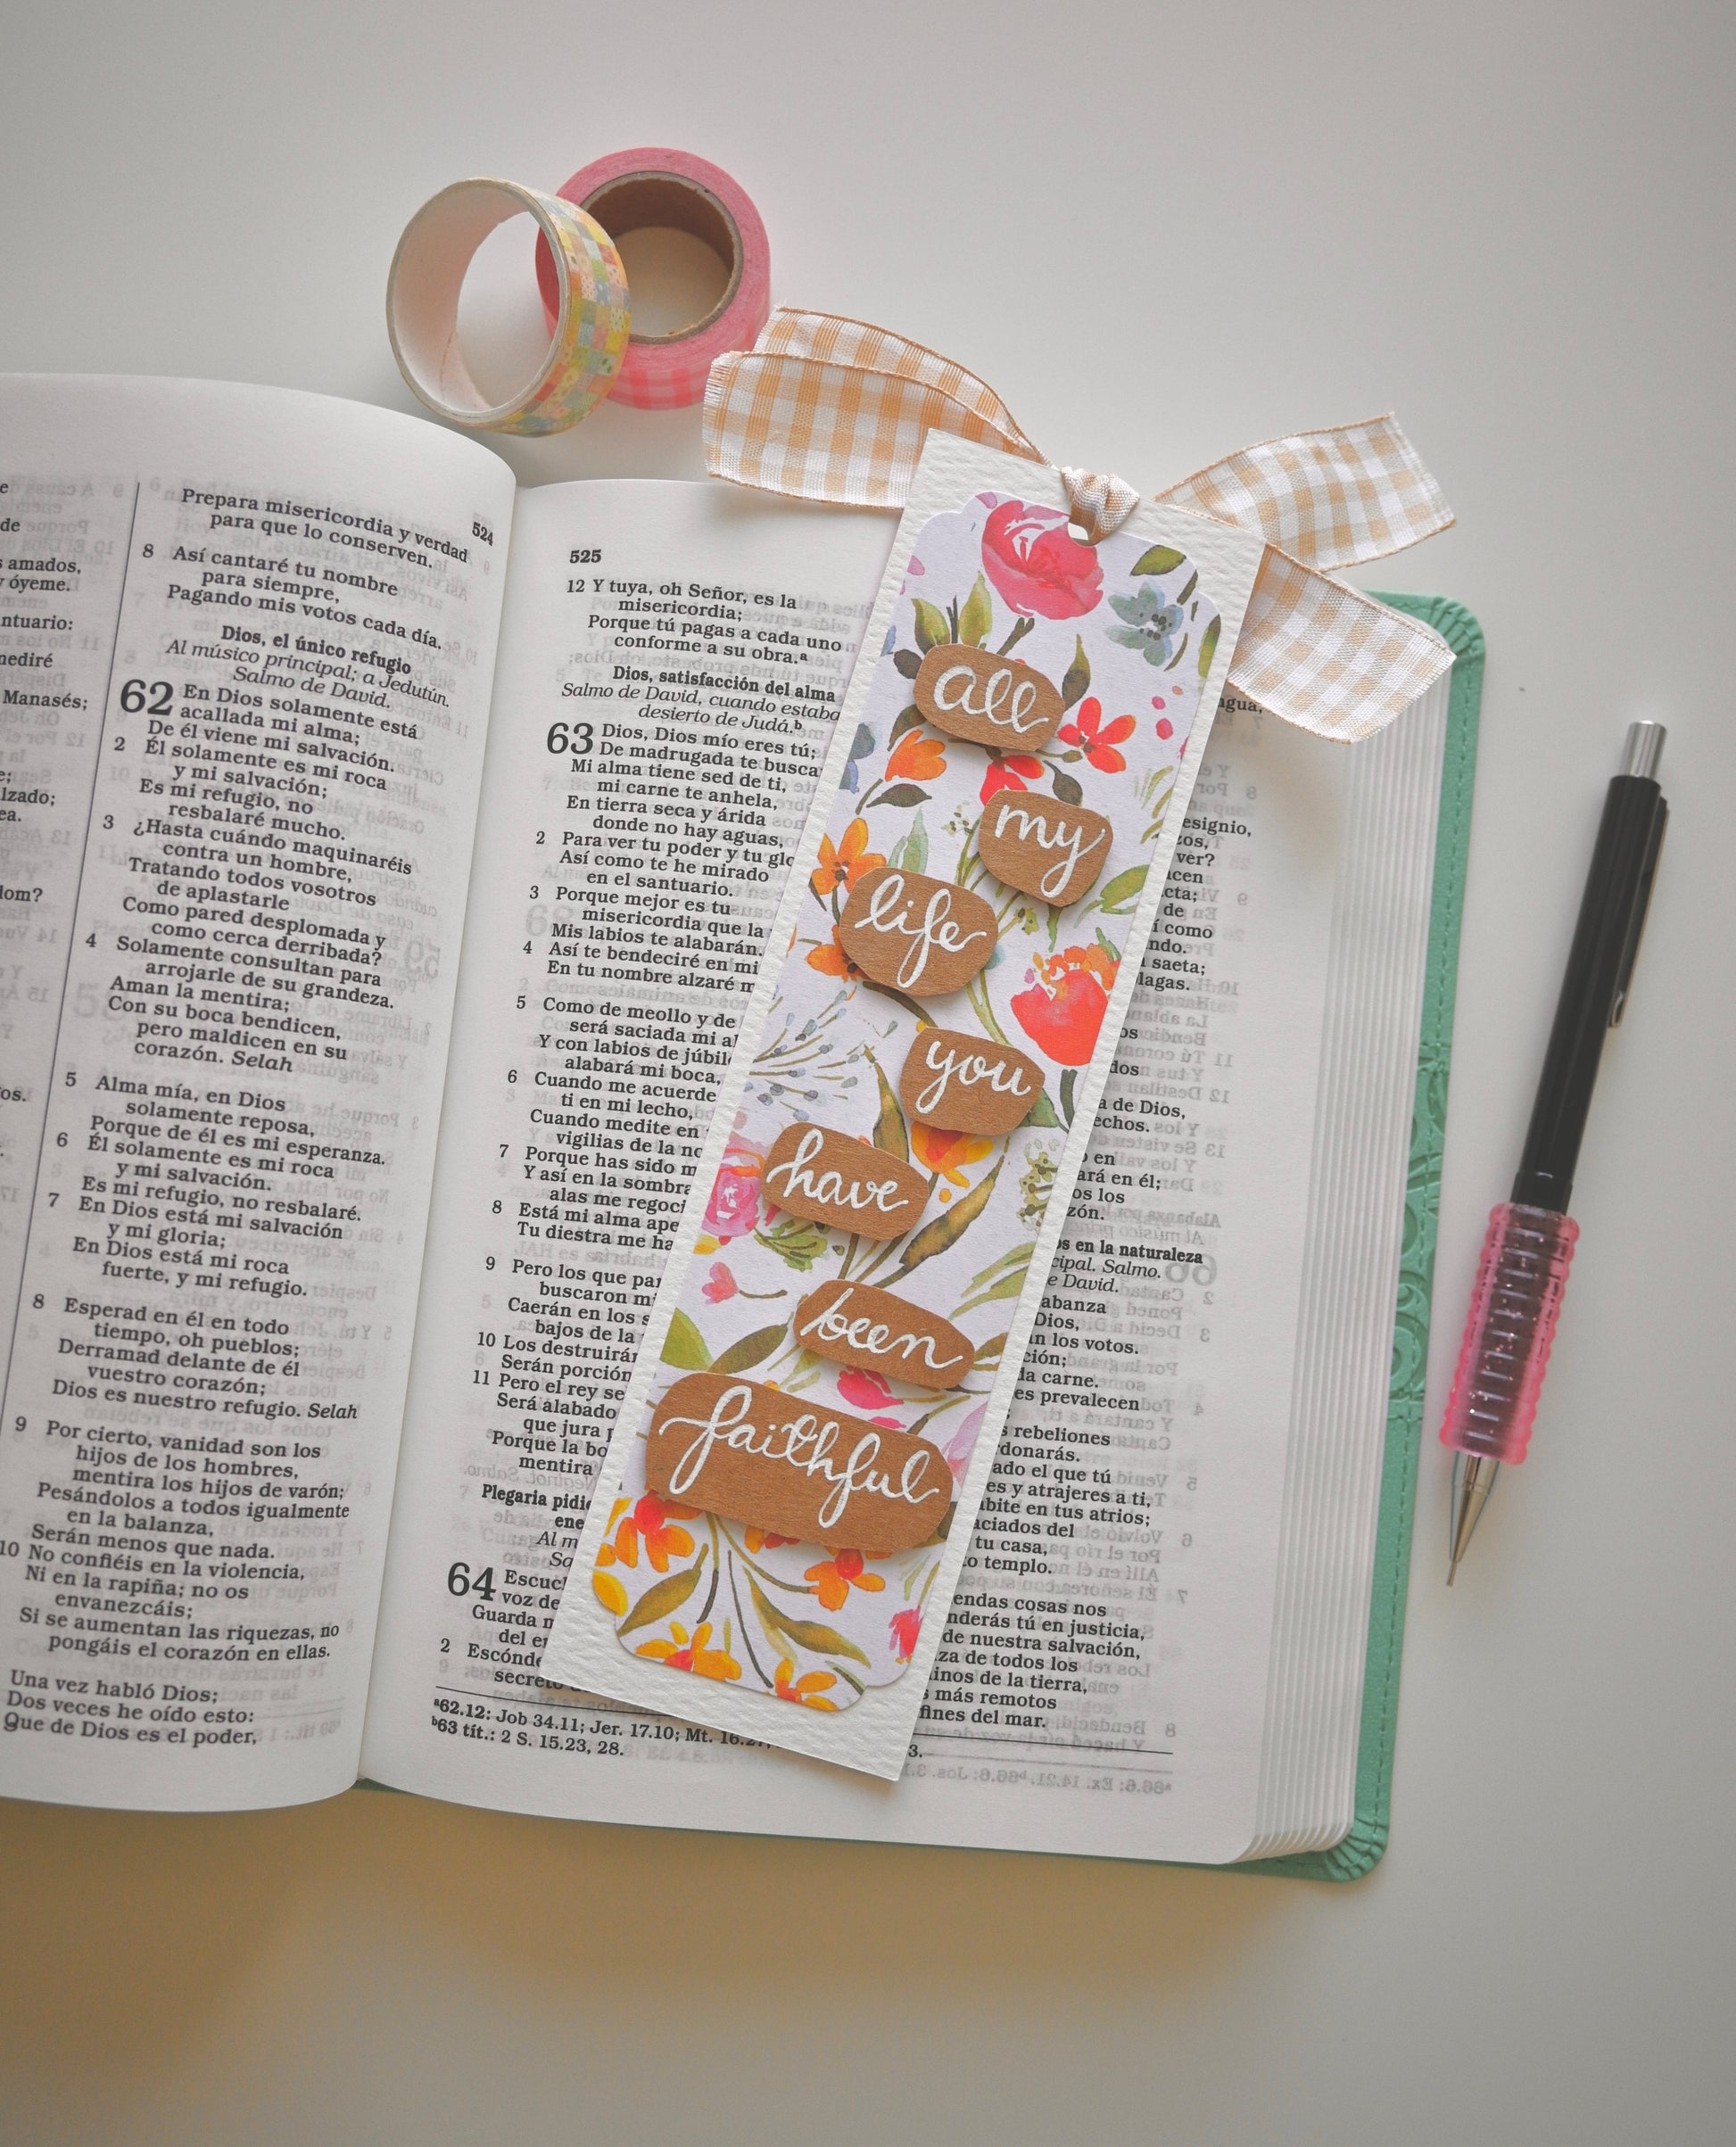 amados,
y óyeme.
Manasés;
Prepara misericordia y verdad
para que lo conserven.
524
8 Así cantaré tu nombre
para siempre,
Pagando mis votos cada día.
Dios, el único refugio
Al músico principal; a Jedutún.
Salmo de David.
62 En Dios solamente está
acallada mi alma;
De él viene mi salvación.
2 Él solamente es mi roca
y mi salvación;
Es mi refugio, no
resbalaré mucho.
3 ¿Hasta cuándo maquinaréis
contra un hombre,
Tratando todos vosotros
de aplastarle
Como pared desplomada y
como cerca derribada?
4 Solamente consultan para
arrojarle de su grandeza.
Aman la mentira;
Con su boca bendicen,
pero maldicen en su
corazón. Selah
5 Alma mía, en Dios
solamente reposa,
Porque de él es mi esperanza.
6 Él solamente es mi roca
y mi salvación.
Es mi refugio, no resbalaré.
7 En Dios está mi salvación
y mi gloria;
En Dios está mi roca
fuerte, y mi refugio.
8 Esperad en él en todo
tiempo, oh pueblos;
Derramad delante de él
vuestro corazón;
Dios es nuestro refugio. Selah
9 Por cierto, vanidad son los
hijos de los hombres,
mentira los hijos de varón;
Pesándolos a todos igualmente
en la balanza,
Serán menos que nada.
10 No confiéis en la violencia,
Ni en la rapiña; no os
envanezcáis;
Si se aumentan las riquezas, no
pongáis el corazón en ellas.
Una vez habló Dios;
Dos veces he oído esto:
Que de Dios es el poder,
525
12 Y tuya, oh Señor, es la
misericordia;
Porque tú pagas a cada uno
conforme a su obra.ª
Dios, satisfacción del alma
Salmo de David, cuando estaba
desierto de Judá.ᵇ
63 Dios, Dios mío eres tú;
De madrugada te busca
Mi alma tiene sed de ti,
mi carne te anhela,
En tierra seca y árida
donde no hay aguas,
2 Para ver tu poder y tu
Así como te he mirado
en el santuario.
3 Porque mejor es tu
misericordia que la
Mis labios te alabarán.
4 Así te bendeciré en mi
En tu nombre alzaré
5 Como de meollo y de
será saciada mi
Y con labios de
alabará mi boca,
6 Cuando me acuerde
ti en mi lecho,
Cuando medite en
vigilias de la
7 Porque has sido
Y así en la
alas me
8 Está mi alma
Tu diestra me
9 Pero los que
buscaron
Caerán en los
bajos de la
10 Los destruirán
Serán porción
11 Pero el rey se
Será alabado
que jura
Porque la
mentira
Plegaria
64
voz de
Guarda
del
2
ª62.12: Job 34.11; Jer. 17.10; Mt.
ᵇ63 tít.: 2 S. 15.23, 28.
all
my
life
you
have
been
faithful
ver?
de
como
saeta;
a de Dios,
en
en él;
los
en la naturaleza
Salmo.
de David.
Dios,
los votos.
carne.
prevalecen
rebeliones
el que tú
y atrajeres a ti,
en tus atrios;
del
tu casa,
templo.
cosas nos
tú en justicia,
de nuestra salvación,
de todos los
de la tierra,
más remotos
del mar.
3.